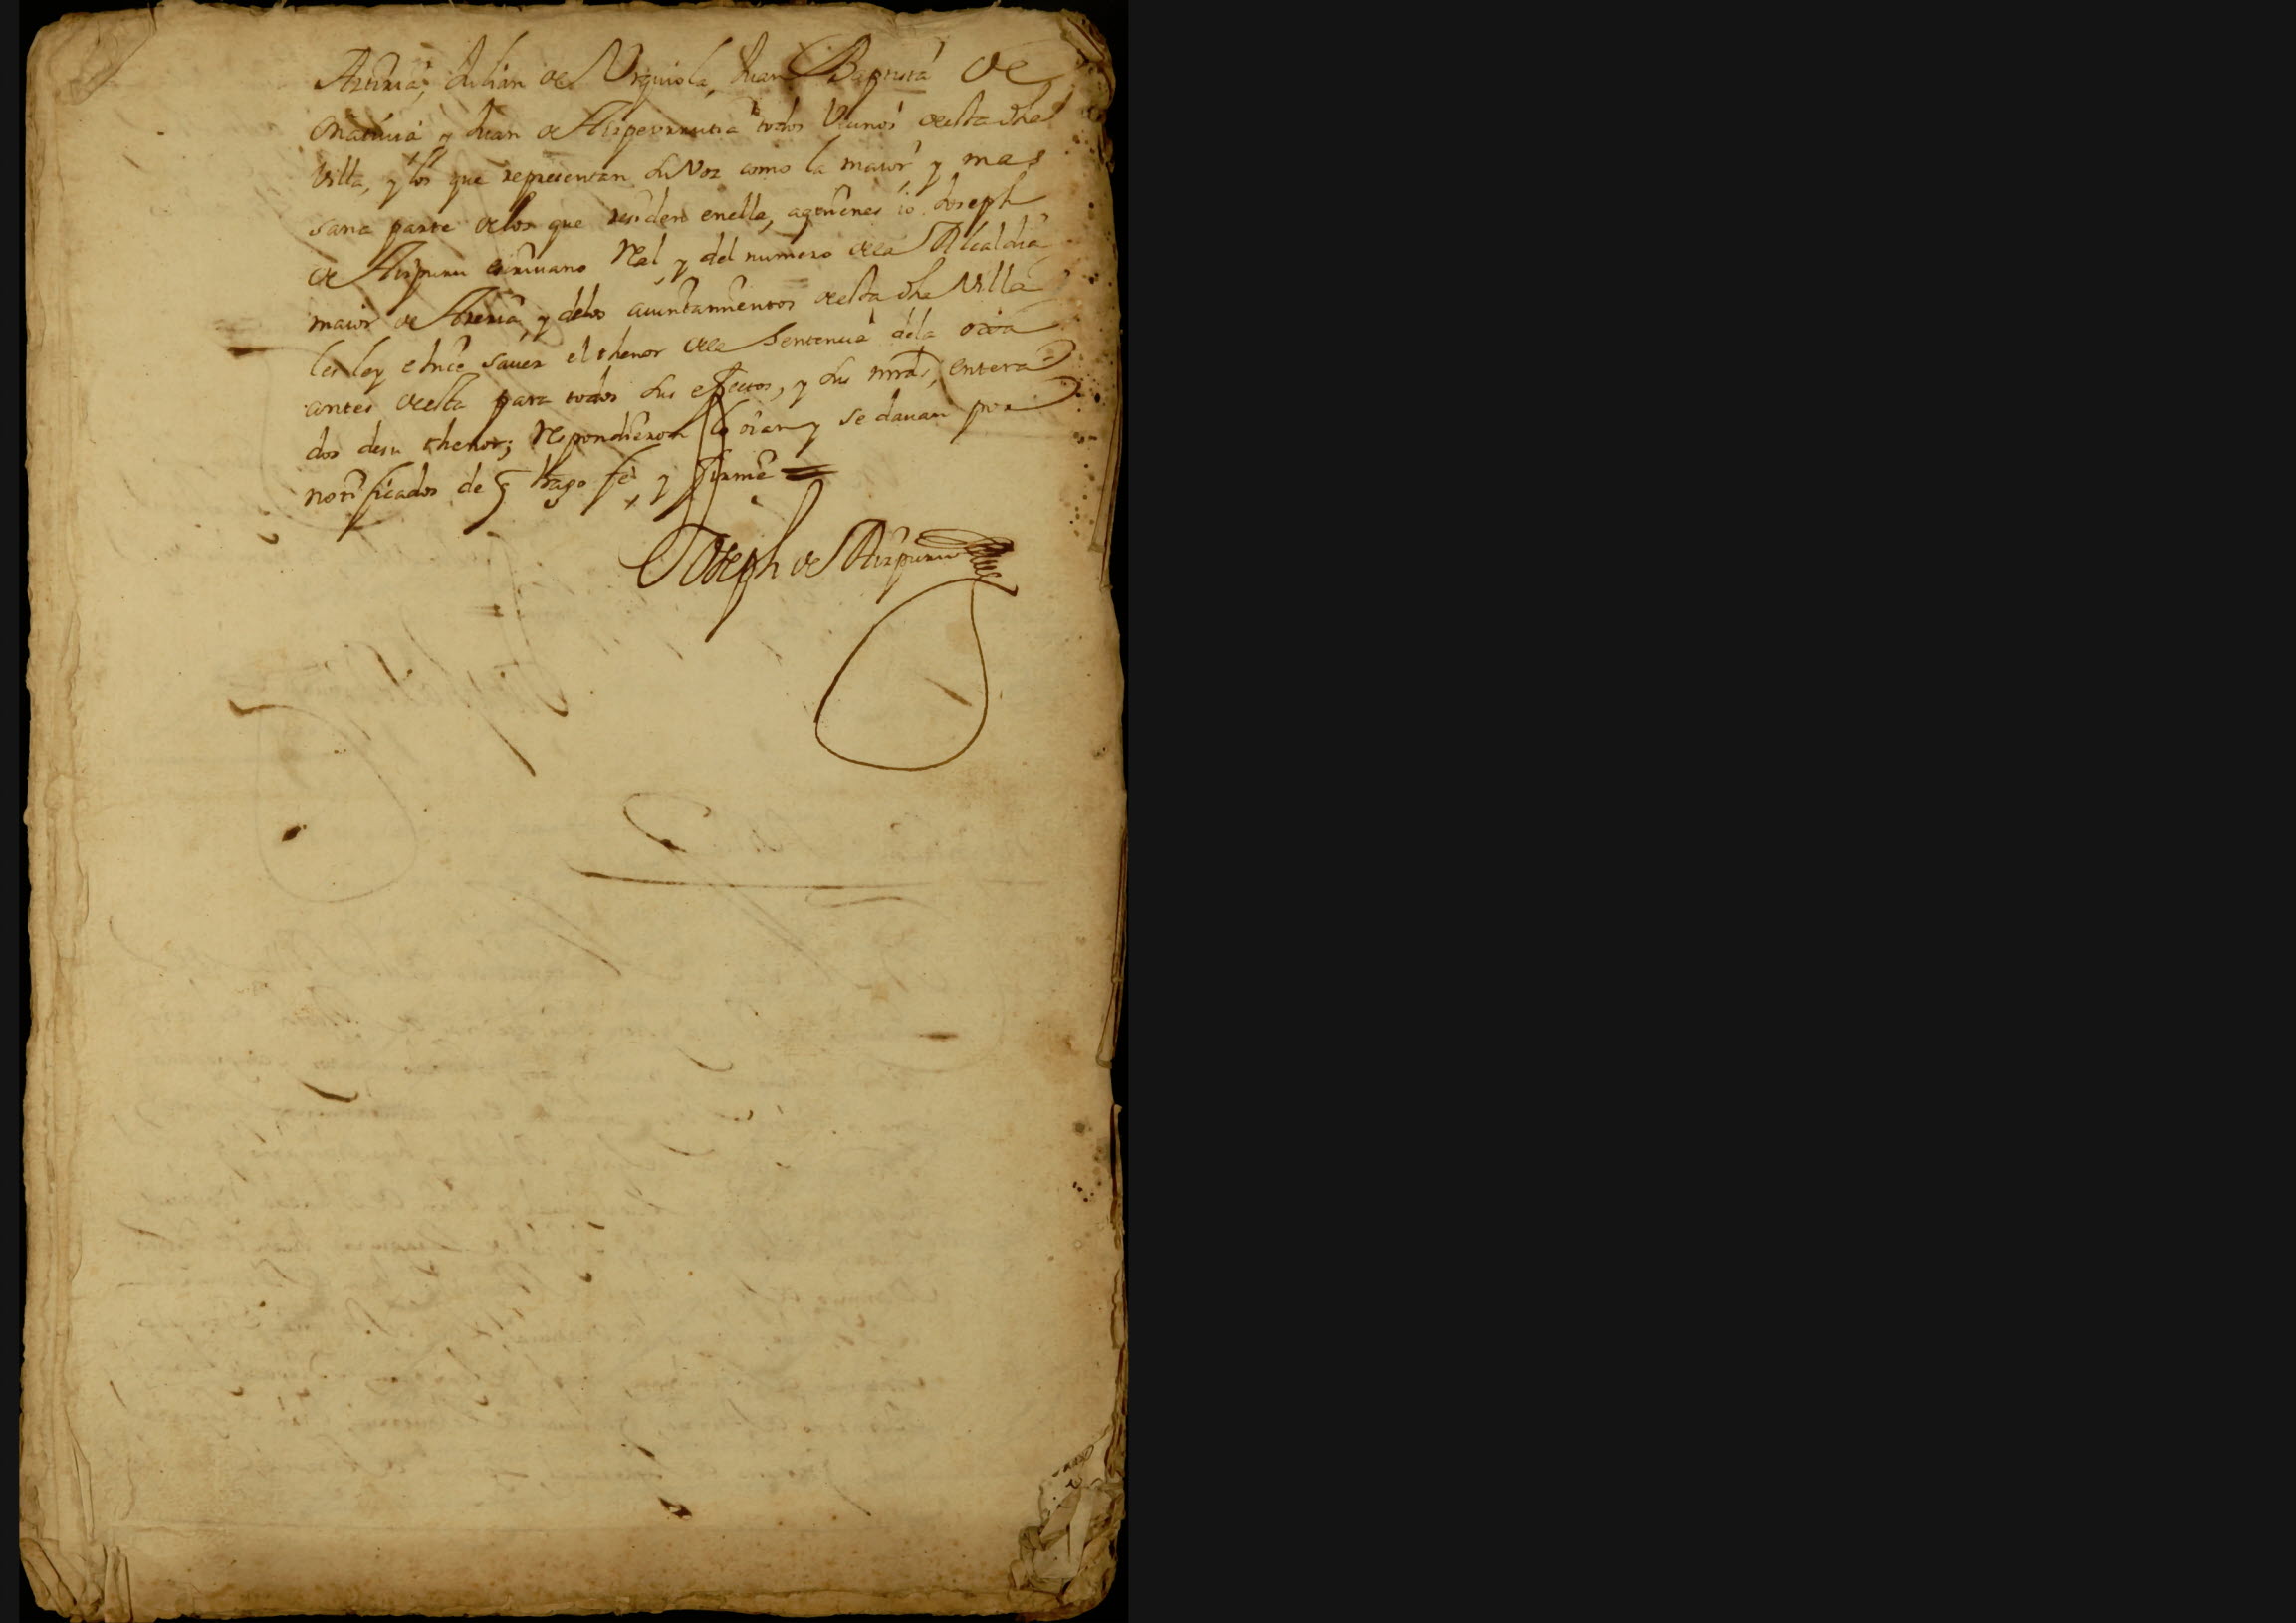 Julian de Urquiola, Juan Baptista de
y Juan de Aispeurrutia todos Vecinos desta dha
Villa, y los que representan su Voz como la maior y mas
sana parte delos que residen enella, aquienes io Joseph
de Aizpuru escriuano Real y del numero dela Alcaldia
maior de Areria, y delos aiuntamientos desta dha Villa
les ley e hice sauer el thenor dela Sentencia dela
antes desta para todos sus efectos, y sus mrds, entera
dos desu thenor; respondieron lo oian y se dauan por
notificados de q hago fe, y firme =
Joseph de Aizpuru